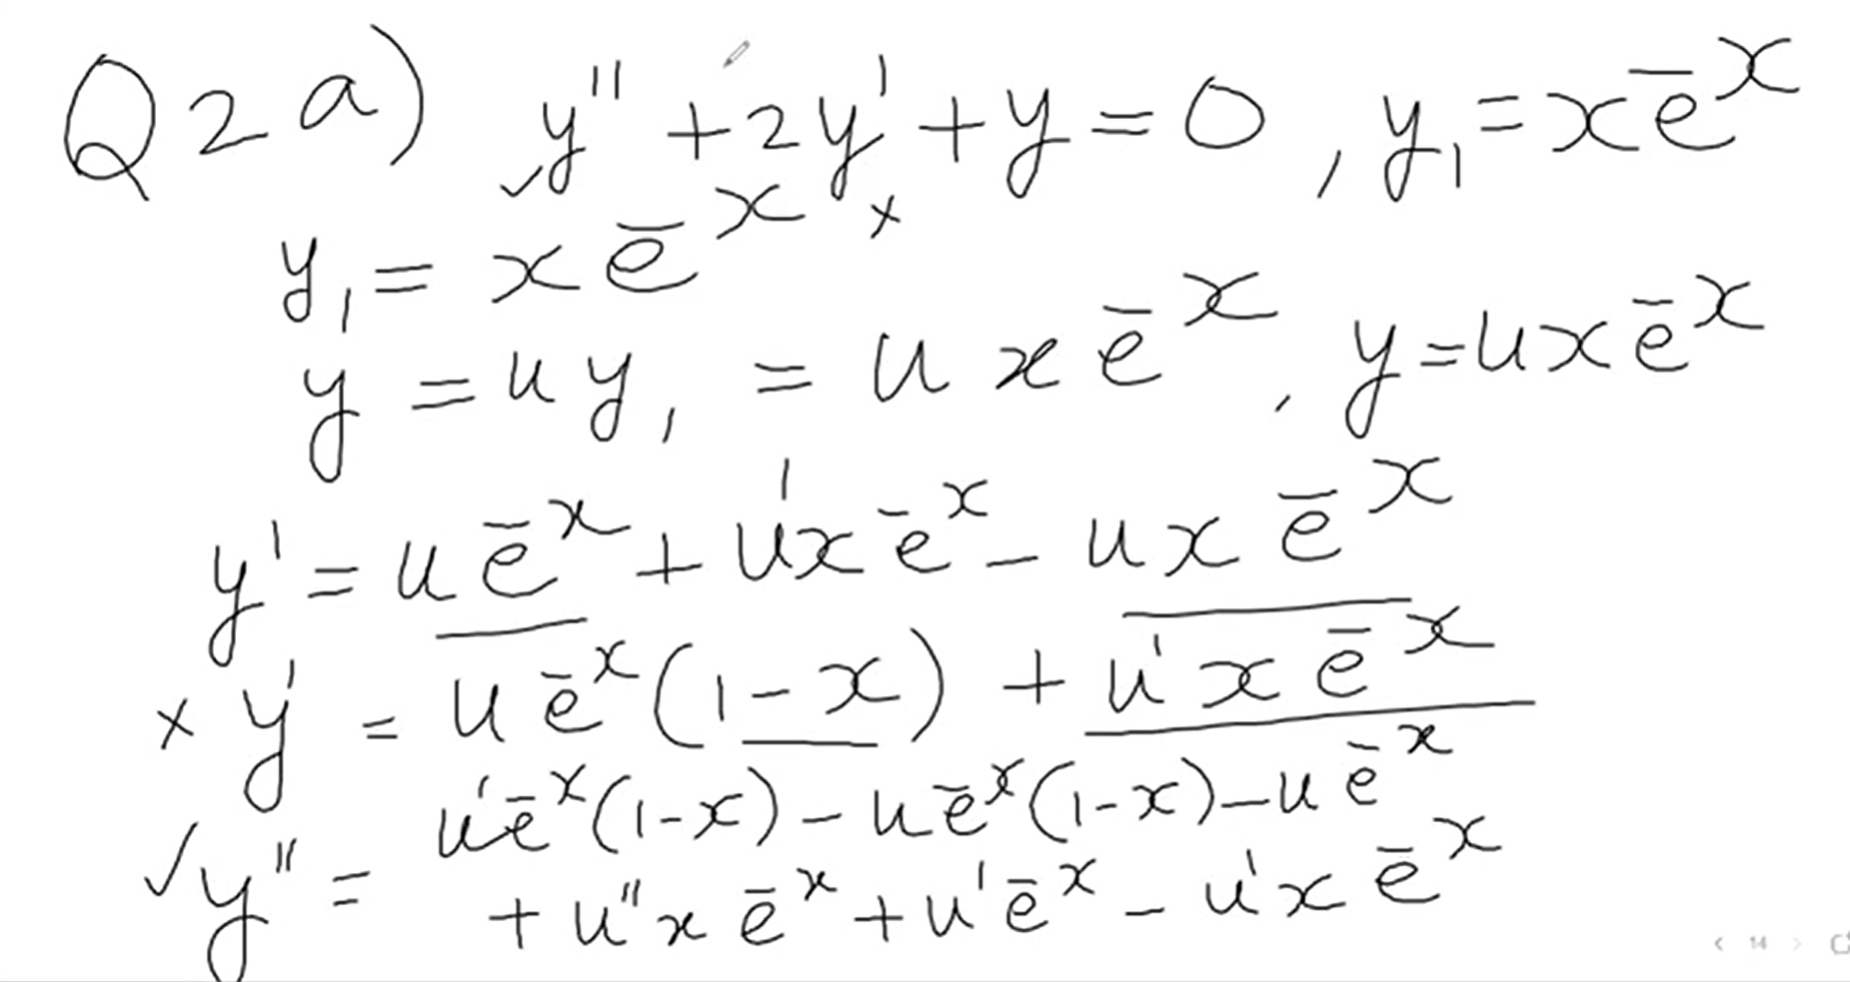 Q2a) y'' + 2y' + y = 0, y₁ = xe⁻ˣ
y₁ = xe⁻ˣ
y = uy₁ = uxe⁻ˣ, y = uxe⁻ˣ
y' = ue⁻ˣ + u'xe⁻ˣ - uxe⁻ˣ
× y' = ue⁻ˣ(1-x) + u'xe⁻ˣ
✓ y'' = u'e⁻ˣ(1-x) - ue⁻ˣ(1-x) - ue⁻ˣ
+ u''xe⁻ˣ + u'e⁻ˣ - u'xe⁻ˣ
< 14 >